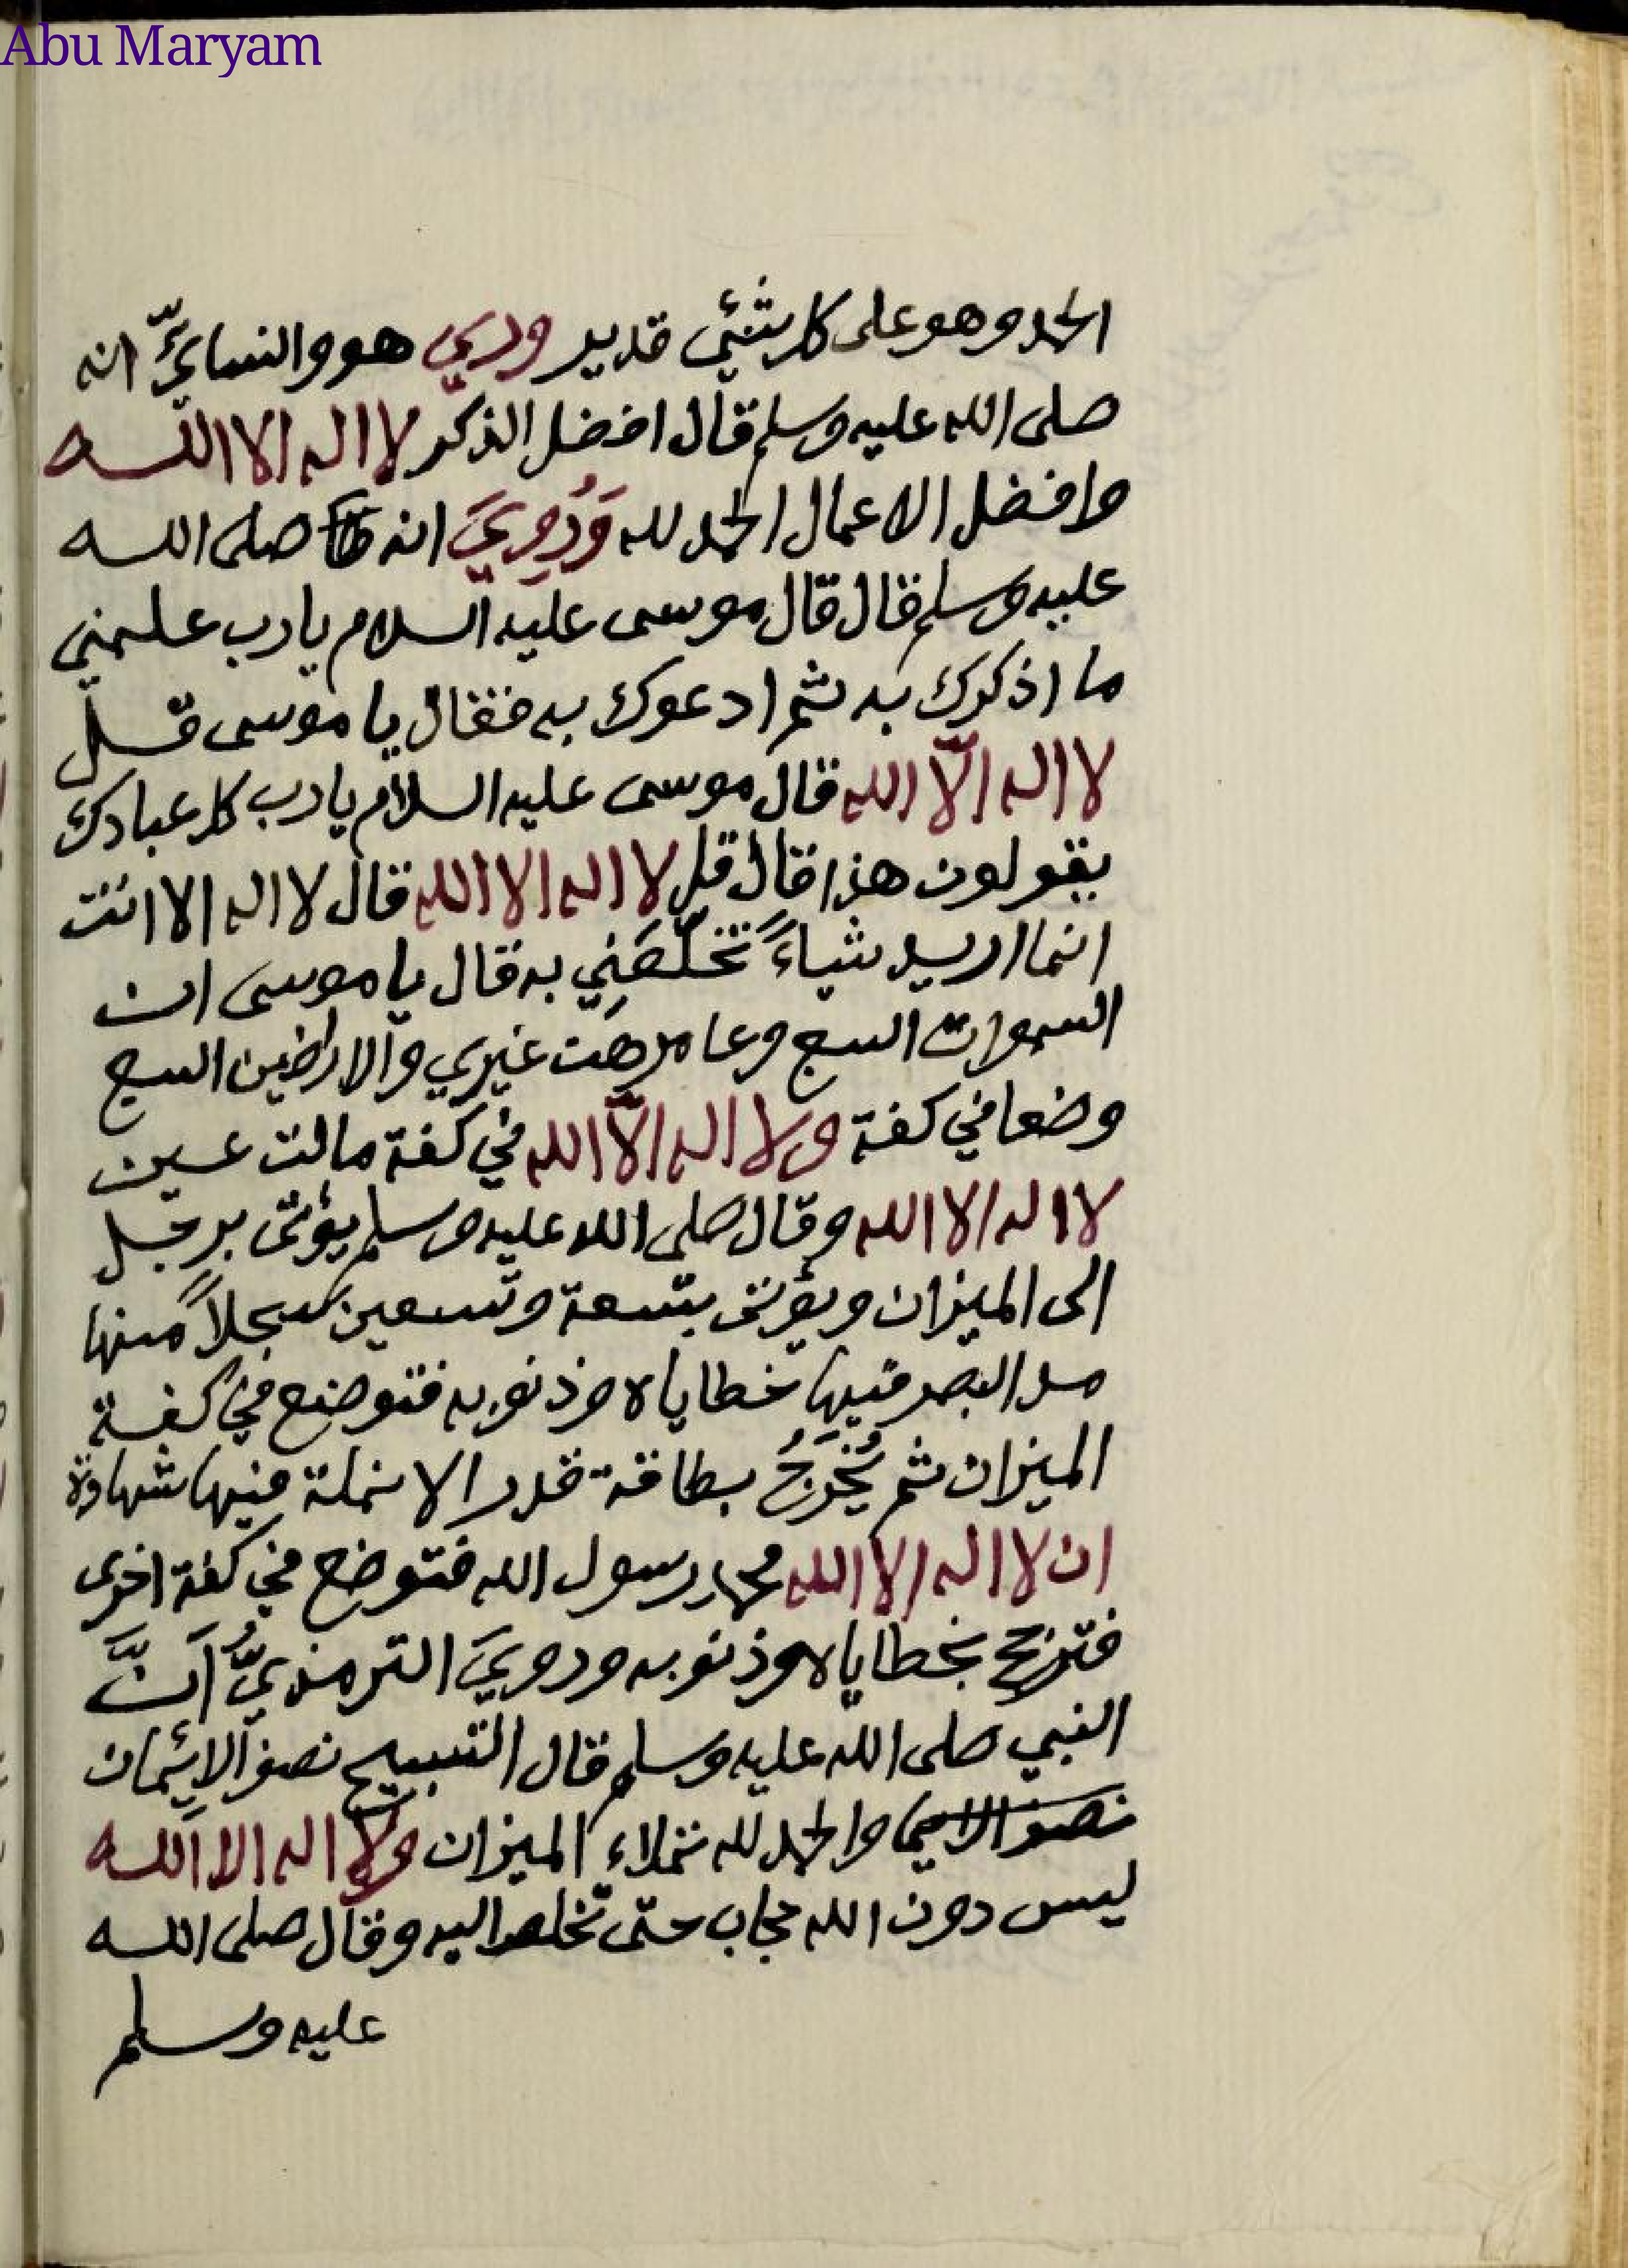 Abu Maryam
الحمد وهو على كل شئي قدير وروي هو والنسائيّ انه
صلى الله عليه وسلم قال افضل الذكر لا اله الا الله
وافضل الاعمال الحمد لله وَرُوِيَ انه صلى الله
عليه وسلم قال قال موسى عليه السلام يا رب علمني
ما اذكرك به ثم ادعوك به فقال يا موسى قل
لا اله الّا الله قال موسى عليه السلام يا رب كل عبادك
يقولون هذا قال قل لا اله الا الله قال لا اله الا انت
انما اريد شياءً تخلّصَنِي به قال يا موسى ان
السموات السبع وعامرهن غيري والاراضين السبع
وضعا في كفة ولا اله الّا الله في كفة مالت عسين
لا اله الا الله وقال صلى الله عليه وسلم يؤتى برجل
الى الميزان ويؤتى بتسعة وتسعين سجلاً منها
مد البصر فيها خطاياه وذنوبه فتوضع في كفة
الميزان ثم يُخْرَجُ بطاقة قدر الانملة فيها شهادة
ان لا اله الا الله محمد رسول الله فتوضع في كفة اخرى
فترجح بخطاياه وذنوبه ورويَ الترمذيُّ اَنَّ
النبي صلى الله عليه وسلم قال التسبيح نصف الايمان
نصف الايما والحمد لله تملاء الميزان ولا اله الا الله
ليس دون الله حجاب حتى تخلص اليه وقال صلى الله
عليه وسلم